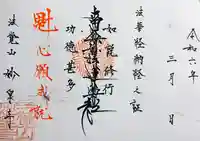 令和六年
三月 日
法華経納経之証
如説修行
南無妙法蓮華経
功徳甚多
心願成就
法覚山 妙